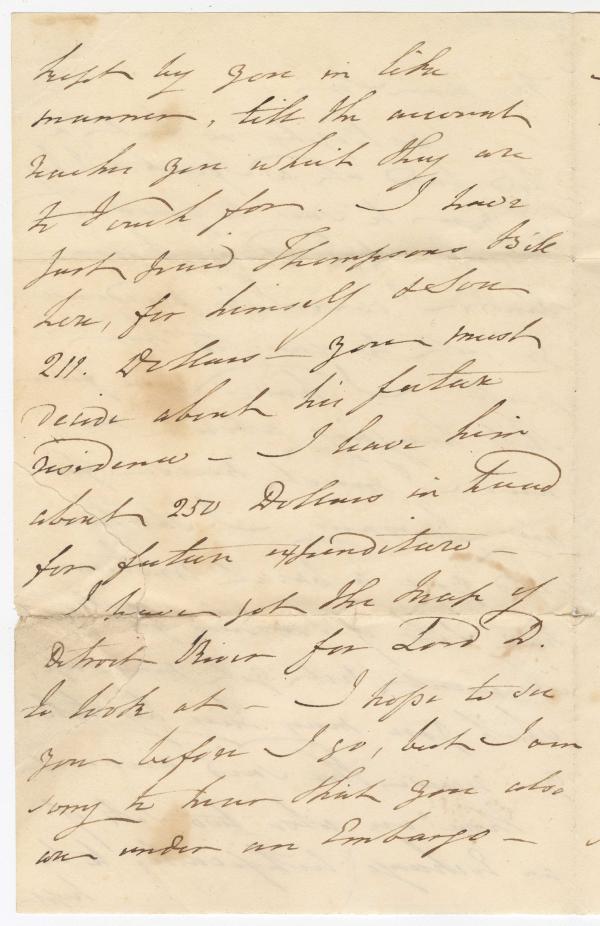 kept by you in like
manner, till the account
reaches you which they are
to Vouch for. I have
just paid Thompsons Bill
here, for himself & Son
211. Dollars - you must
decide about his future
residence - I leave him
about 250 Dollars in hand
for future expenditure -
I have got the Map of
Detroit River for Lord D.
to look at - I hope to see
you before I go, but I am
sorry to hear that you also
are under an Embargo -